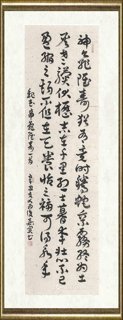 神龜雖壽猶有竟時騰蛇乘霧終為土
灰老驥伏櫪志在千里烈士暮年壯心不已
盈縮之期不但在天養怡之福可得永年
龜雖壽